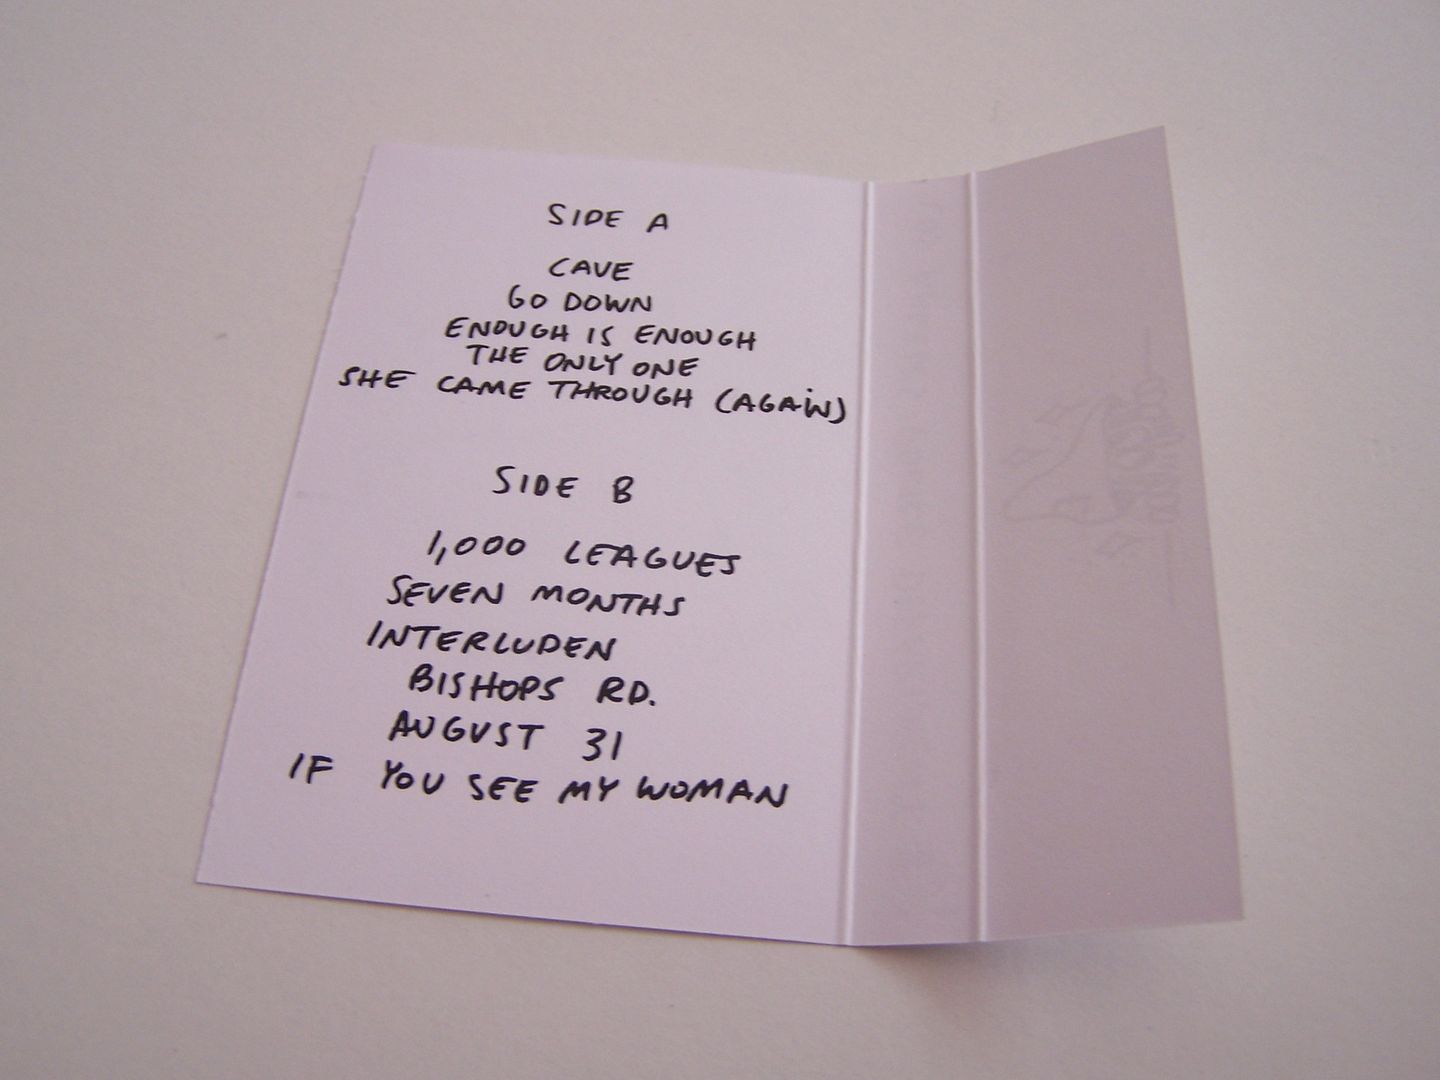 SIDE A
CAVE
GO DOWN
ENOUGH IS ENOUGH
THE ONLY ONE
SHE CAME THROUGH (AGAIN)
SIDE B
1,000 LEAGUES
SEVEN MONTHS
INTERLUDEN
BISHOPS RD.
AUGUST 31
IF YOU SEE MY WOMAN